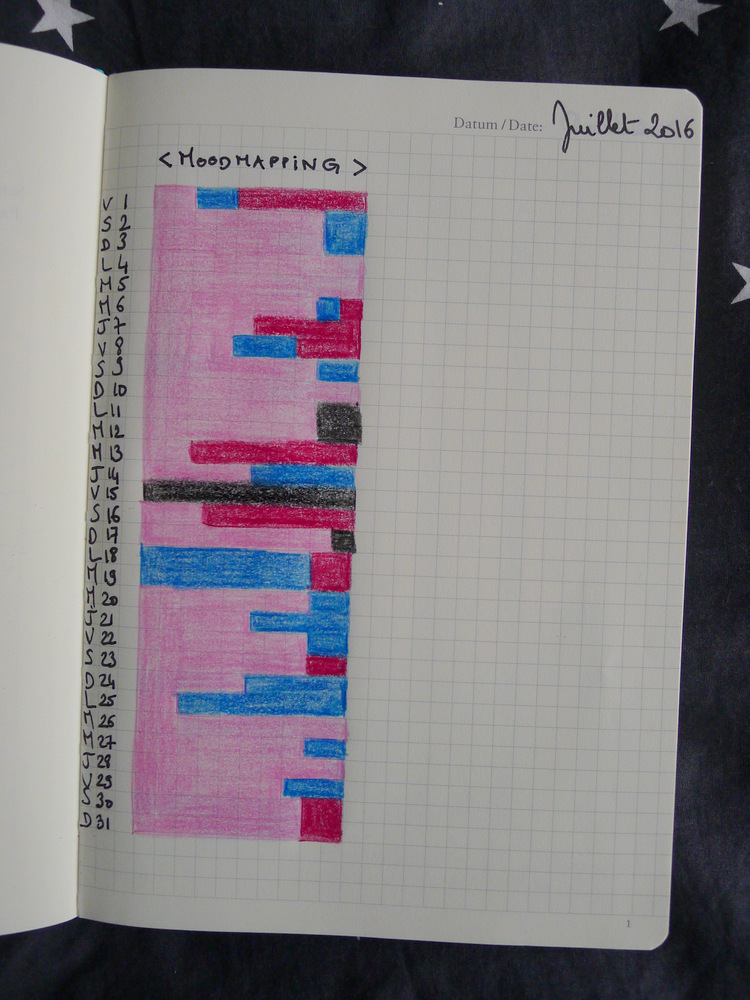 Datum / Date: Juillet 2016
< MOODMAPPING >
V 1
S 2
D 3
L 4
M 5
M 6
J 7
V 8
S 9
D 10
L 11
M 12
M 13
J 14
V 15
S 16
D 17
L 18
M 19
M 20
J 21
V 22
S 23
D 24
L 25
M 26
M 27
J 28
V 29
S 30
D 31
1